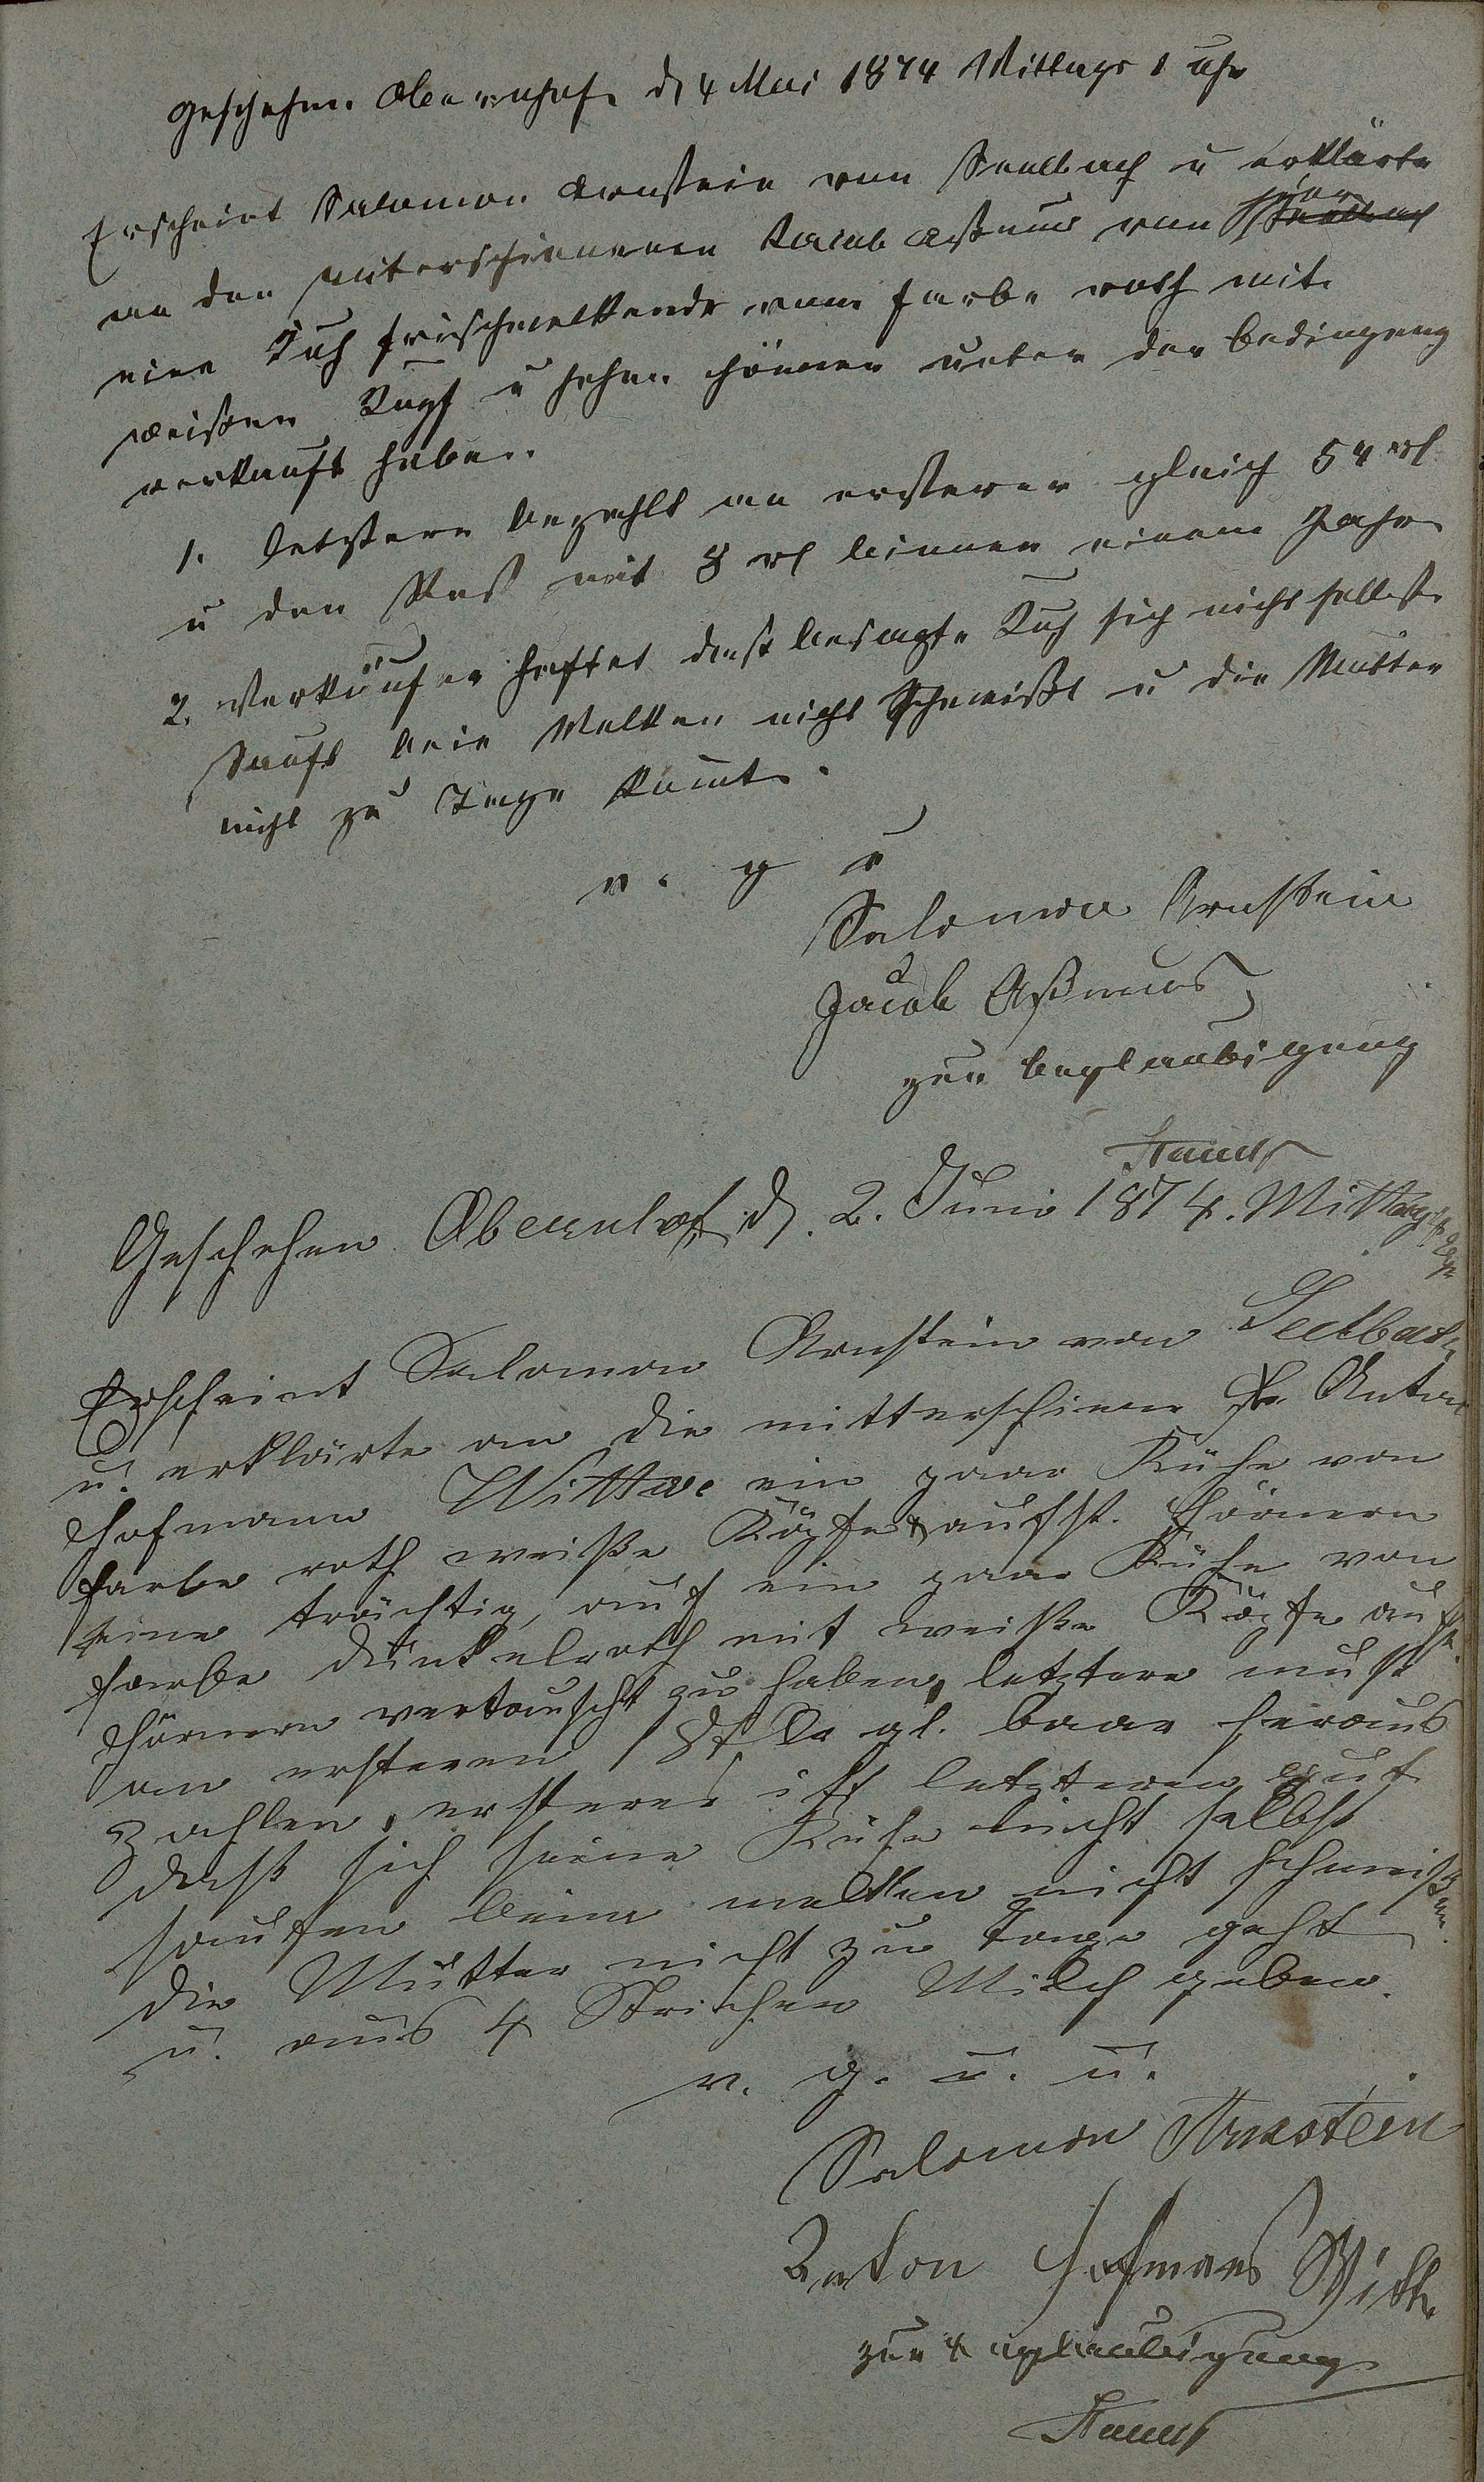 Geschehen Obernhof d 4 Mai 1874 Mittags 1 Uhr
Erscheint Salomon Arnstein von Seelbach u erklärte
an den miterschienenen Jacob Aßmus von hier
eine Kuh frischmelkende von Farbe roth mit
weißen Kopf u hohen Hörner unter der Bedingung
verkauft haben.
1. Letztere bezahlt an ersterer gleich 54 rl
u den Rest mit 8 rl binnen einem Jahr
2. Verkäufer haftet dast besagte Kuh sich nicht selbst
Sauft beim Melken nicht Schmeißt u die Mutter
nicht zu Tage kommt.
v. g u
Salomon Arnstein
Jacob Aßmus
zur beglaubigung
Geschehen Obernhof, d. 2. Juni 1874. Mittags
Erscheint Salomon Arnstein von Seelbach
u. erklärte an die mitterschiene Anton
Hofmann Wittwe ein paar Kühe von
Farbe roth weiße Köpfe aufst. Hörnern
eine trächtig, auf ein paar Kühe von
Farbe dunkelroth mit weiße Köpfe aufst.
Hörnern vertauscht zu haben, letztere muß
an ersteren 18 gl. baar heraus
zahlen, ersterer ist letzteren gut
dast sich seine Kühe nicht selbst
saufen beim melken nicht schmeißen
die Mutter nicht zu Tage geht
u. aus 4 Strichen Milch geben.
v. g. u. u.
Salomon Arnstein
Anton Hofmans Witt.
zur beglaubigung